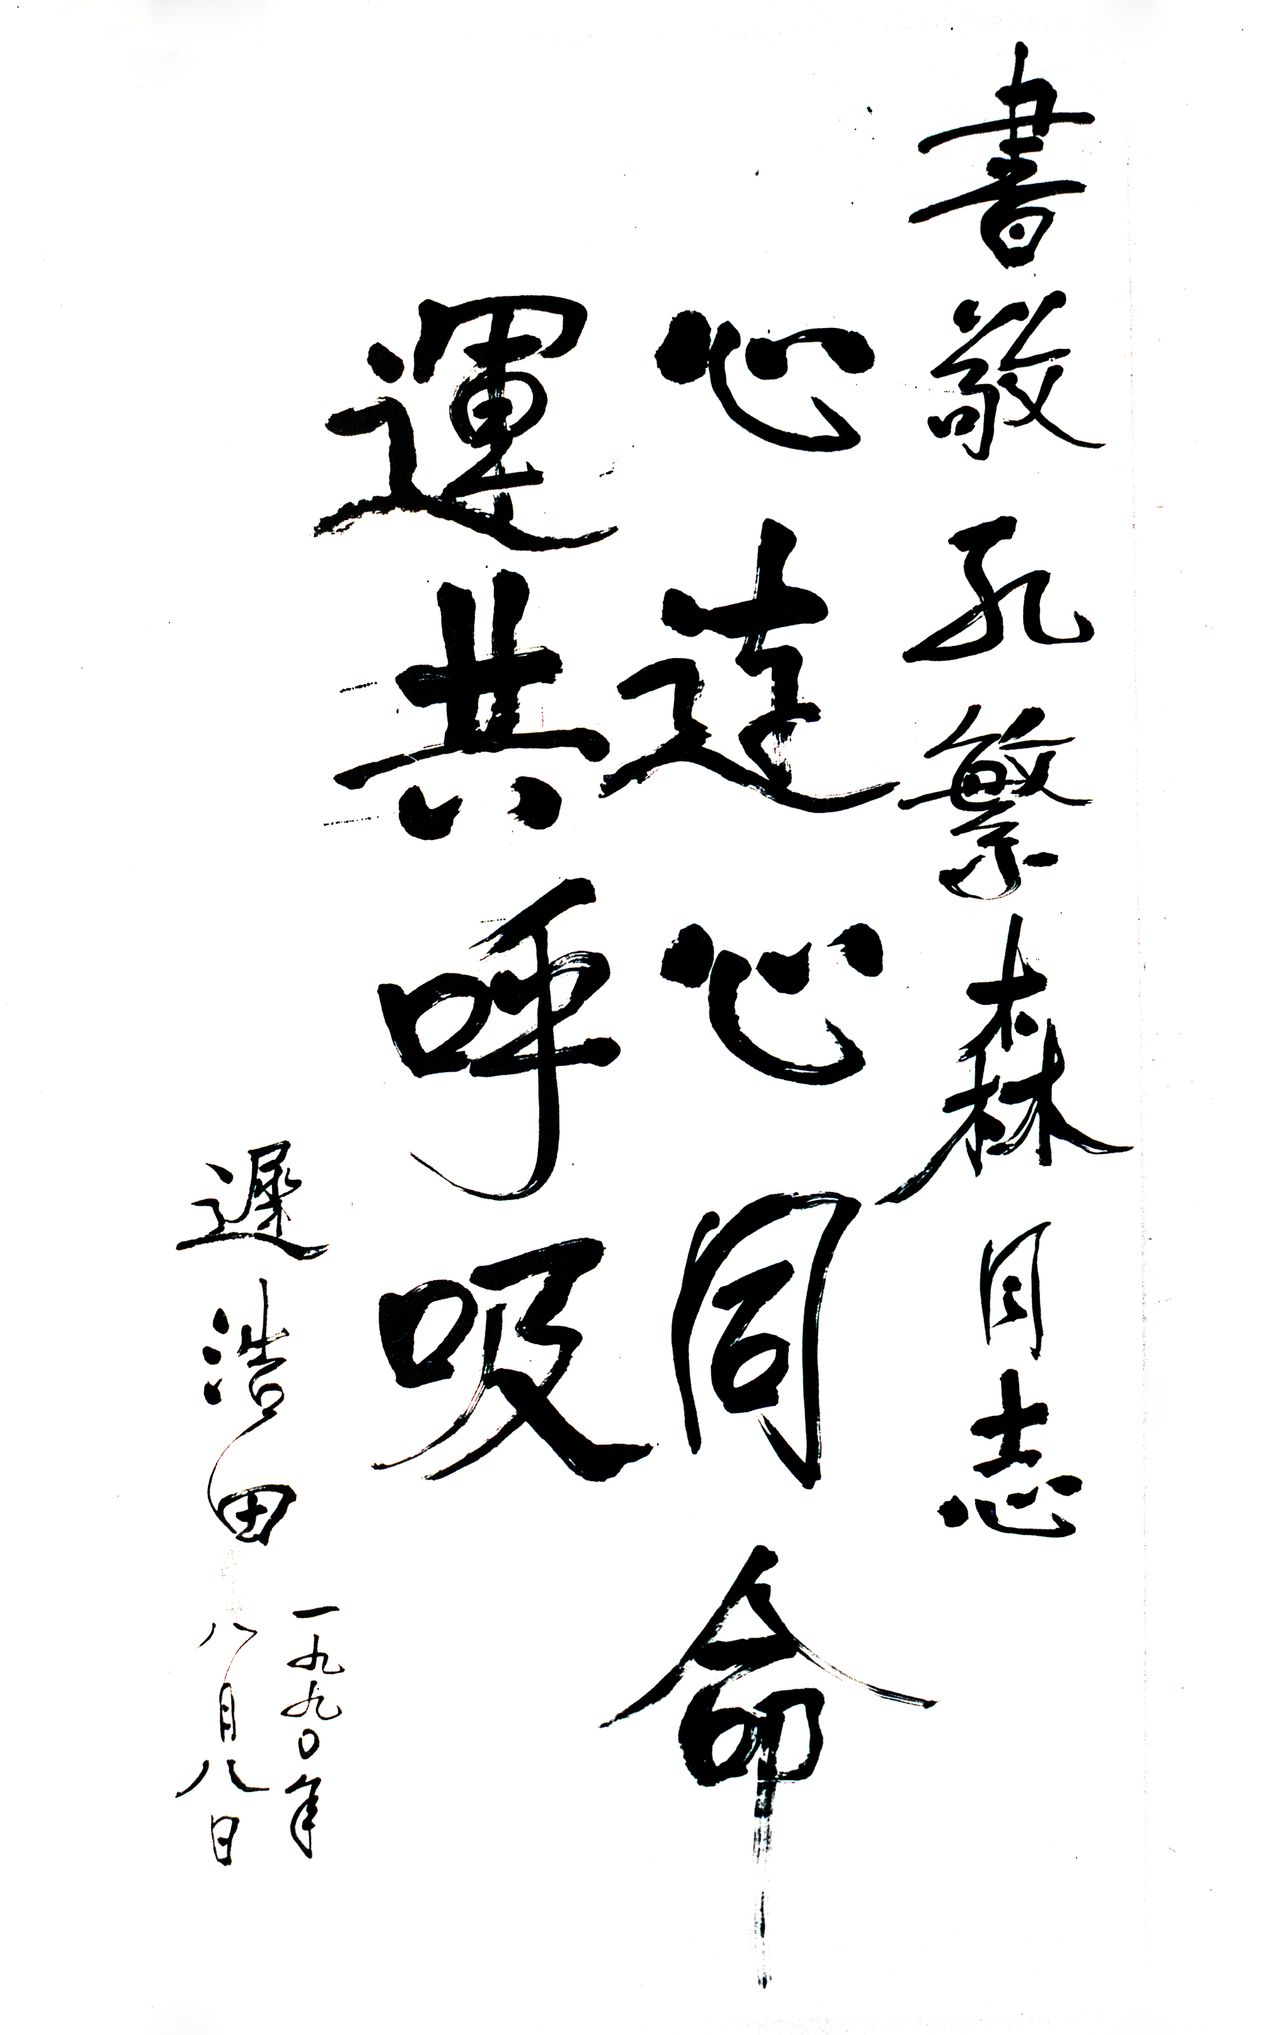 書敬孔繁森同志
心连心同命
運共呼吸
遲浩田
一九九〇年
八月八日